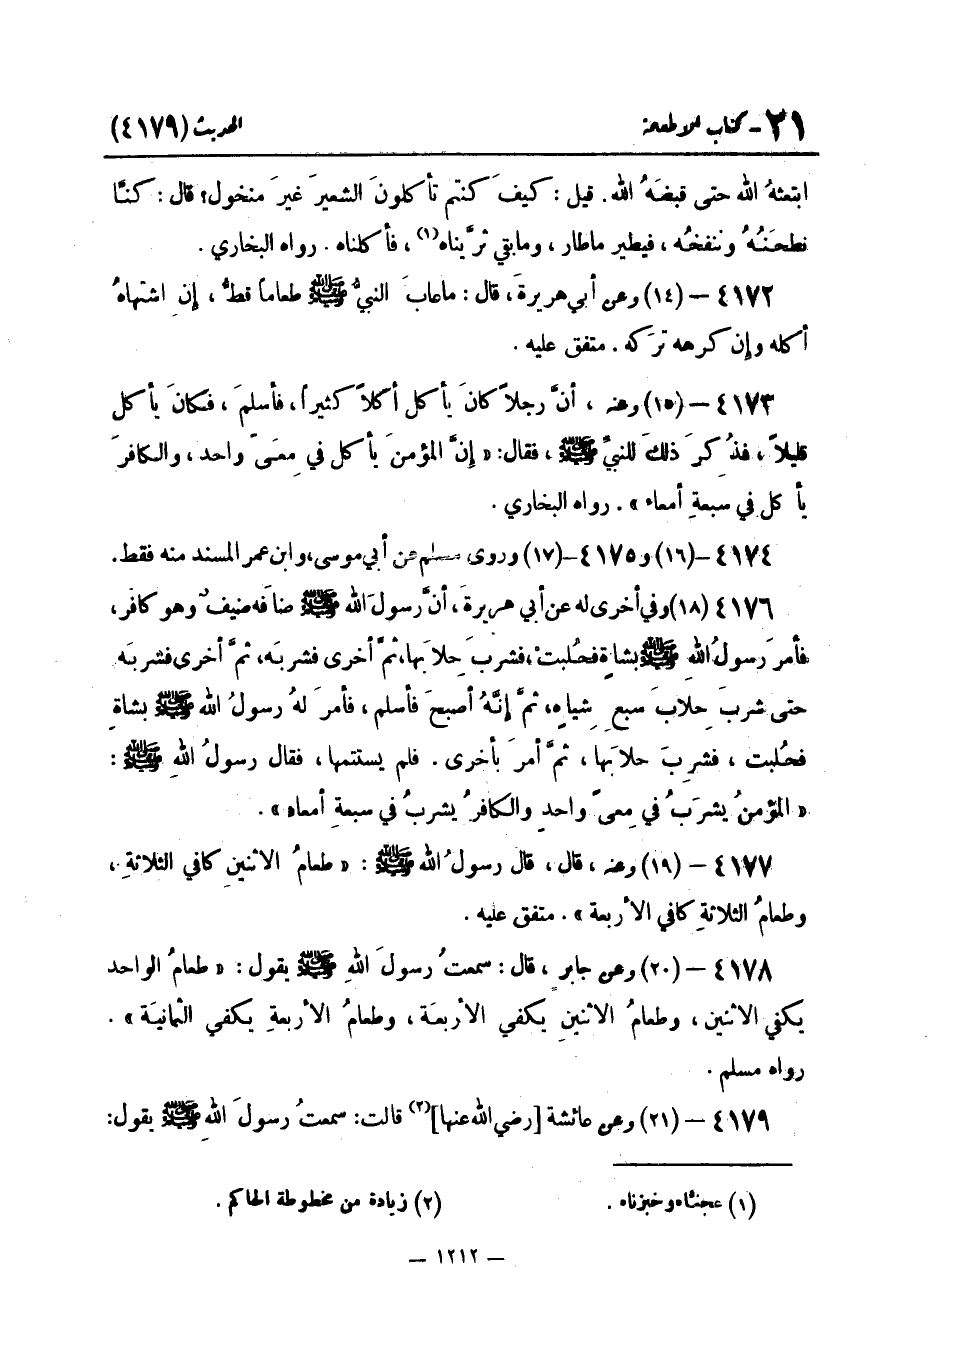 ٢١ - كتاب الأطعمة الحديث (٤١٧٩)
ابتعثهُ الله حتى قبضَهُ الله. قيل : كيفَ كنتم تأكلونَ الشعيرَ غيرَ منخول؟ قال : كنَّا
نطحَنُهُ وننفخُه ، فيطير ماطار ، ومابقي ثرَّيناه(١) ، فأكلناه . رواه البخاري .
٤١٧٢ – (١٤) وعن أبي هريرةَ ، قال : ماعابَ النبيُّ ﷺ طعاماً قطُّ ، إنِ اشتهاهُ
أكله وإن كرهه تركه . متفق عليه .
٤١٧٣ – (١٥) وعنه ، أنَّ رجلاً كانَ يأكل أكلاً كثيراً ، فأسلمَ ، فكانَ يأكل
قليلاً ، فذُكِرَ ذلكَ للنبيِّ ﷺ ، فقال: « إنَّ المؤمنَ يأكل في مِعىً واحد ، والكافرَ
يأكل في سبعةِ أمعاء » . رواه البخاري .
٤١٧٤ –(١٦) و٤١٧٥–(١٧) وروى مسلم عن أبي موسى، وابن عمر المسند منه فقط.
٤١٧٦ (١٨)وفي أخرى له عن أبي هريرةَ، أنَّ رسولَ الله ﷺ ضافَه ضيفٌ وهو كافر،
فأمرَ رسولُ اللهِ ﷺ بشاةٍ فحُلبتْ، فشربَ حِلابَها، ثمَّ أخرى فشربَه، ثمَّ أخرى فشربَه
حتى شربَ حِلابَ سبعِ شِياهٍ، ثمَّ إنَّهُ أصبحَ فأسلم ، فأمرَ لهُ رسولُ الله ﷺ بشاةٍ
فحُلبت ، فشربَ حلابَها ، ثمَّ أمرَ بأخرى . فلم يستتمها ، فقال رسولُ اللهِ ﷺ :
« المؤمنُ يشرَبُ في مِعىً واحدٍ والكافرُ يشربُ في سبعةِ أمعاء » .
٤١٧٧ – (١٩) وعنه ، قال ، قال رسولُ الله ﷺ : « طعامُ الاثنينِ كافي الثلاثةِ ،
وطعامُ الثلاثةِ كافي الأربعة » . متفق عليه .
٤١٧٨ – (٢٠) وعن جابرٍ ، قال : سمعتُ رسولَ اللهِ ﷺ يقول : « طعامُ الواحد
يكفي الاثنين ، وطعامُ الاثنينِ يكفي الأربعة ، وطعامُ الأربعةِ يكفي الثمانيَة » .
رواه مسلم .
٤١٧٩ – (٢١) وعن عائشة [رضي الله عنها](٢) قالت: سمعتُ رسولَ اللهِ ﷺ يقول:
(١) عجنّاه وخبزناه . (٢) زيادة من مخطوطة الحاكم .
– ١٢١٢ –